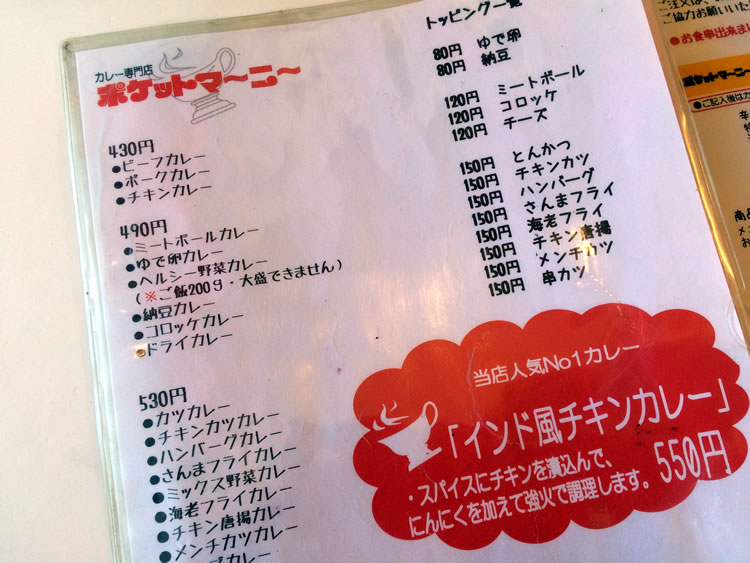 カレー専門店
ポケットマ〜ニ〜
430円
●ビーフカレー
●ポークカレー
●チキンカレー
490円
●ミートボールカレー
●ゆで卵カレー
●ヘルシー野菜カレー
(※ご飯200g・大盛できません)
●納豆カレー
●コロッケカレー
●ドライカレー
530円
●カツカレー
●チキンカツカレー
●ハンバーグカレー
●さんまフライカレー
●ミックス野菜カレー
●海老フライカレー
●チキン唐揚カレー
●メンチカツカレー
トッピング一覧
80円 ゆで卵
80円 納豆
120円 ミートボール
120円 コロッケ
120円 チーズ
150円 とんかつ
150円 チキンカツ
150円 ハンバーグ
150円 さんまフライ
150円 海老フライ
150円 チキン唐揚
150円 メンチカツ
150円 串カツ
当店人気No1カレー
「インド風チキンカレー」
・スパイスにチキンを漬込んで、
にんにくを加えて強火で調理します。
550円
ご協力お願いいた
●お食事出来ま
ポケットマーニ
●ご記入後はカ